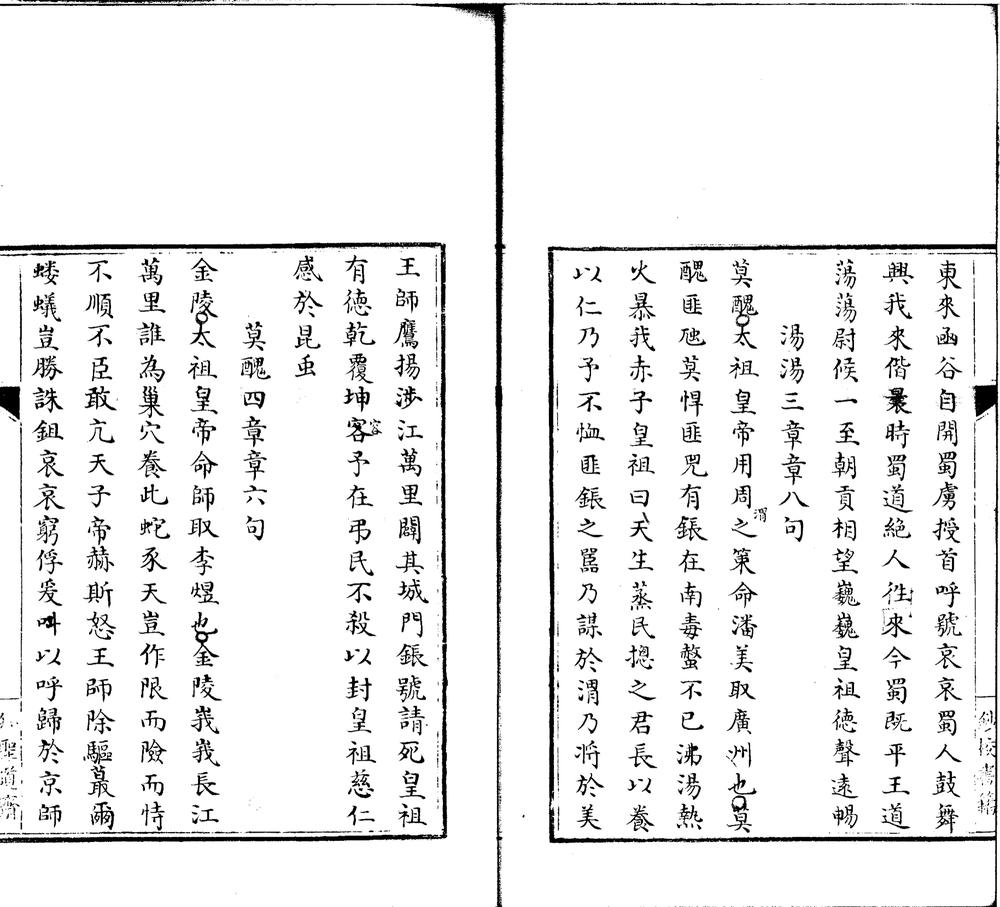 東來函谷自開蜀虜授首呼號哀哀蜀人鼓舞
興我來偕曩時蜀道絕人徃來今蜀既平王道
蕩蕩尉候一至朝貢相望巍巍皇祖德聲遠暢
湯湯三章章八句
莫醜太祖皇帝用周渭之策命潘美取廣州也莫
醜匪虺莫悍匪兕有鋹在南毒螫不已沸湯熱
火暴我赤子皇祖曰天生蒸民摠之君長以養
以仁乃予不恤匪鋹之嚚乃謀於渭乃將於美
王師鷹揚涉江萬里闢其城門鋹號請死皇祖
有德乾覆坤容予在弔民不殺以封皇祖慈仁
感於昆虫
莫醜四章章六句
金陵太祖皇帝命師取李煜也金陵峩峩長江
萬里誰為巢穴養此蛇豕天豈作限而險而恃
不順不臣敢亢天子帝赫斯怒王師除驅蕞爾
螻蟻豈勝誅鉏哀哀窮俘爰呌以呼歸於京師
鈔校書籍
聖道齋